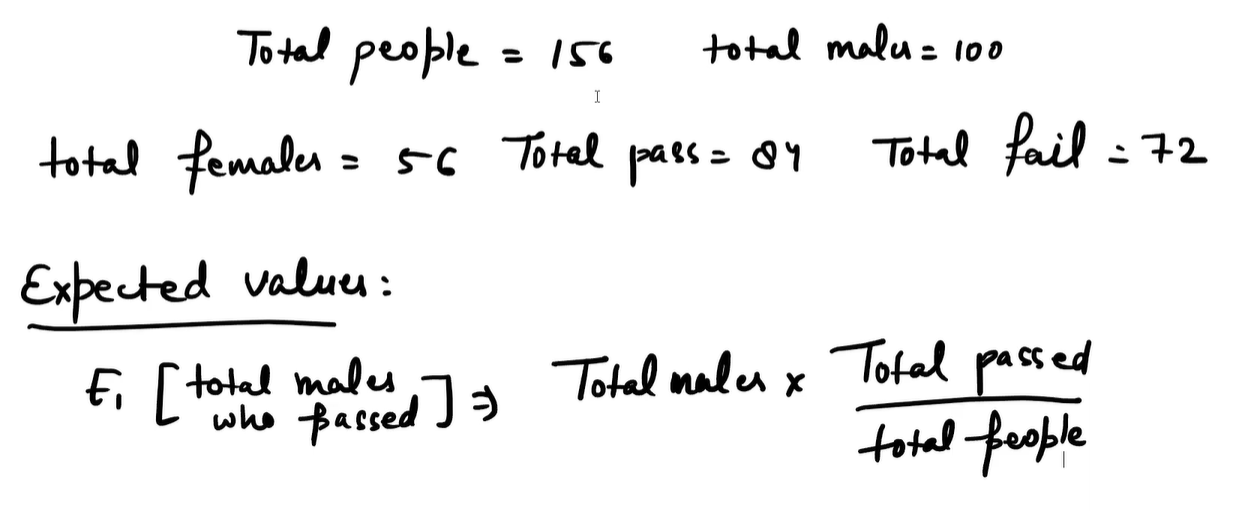 Total people = 156 total males = 100
total females = 56 Total pass = 84 Total fail = 72
Expected values:
E₁ [total males who passed] ⇒ Total males × Total passed / total people